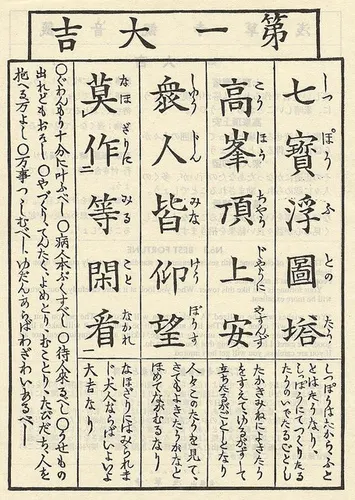 第一大吉
七寳浮圖塔
しつ ぽう ふ との たう
高峯頂上安
こう ほう ちやう じやうに やすんず
衆人皆仰望
しゆう じん みな けう ぼうす
莫作二等閑看一
なほざりに みる こと なかれ
しつぽうはたから、ふ
とはたうなり、
しつぽうにてつくりたる
たうのいでたるごとし
たかきみねによきたう
をすえてゆるがずして
立ちたるがごとしとなり
人々このたうを見て、
さてもよきたうかなと
ほめてながむるなり
なほざりにはみられま
じ、大人ならばいよいよ
大吉なり
○ぐわんもう十分に叶ふべし○病人本ぷくすべし○待人来るべし○うせもの
出れどもおそし○やづくり、てんたく、よめとり、むことり、たびだち、人を
抱へる万よし○万事つゝしむべし、ゆだんあらばわざわいあるべし